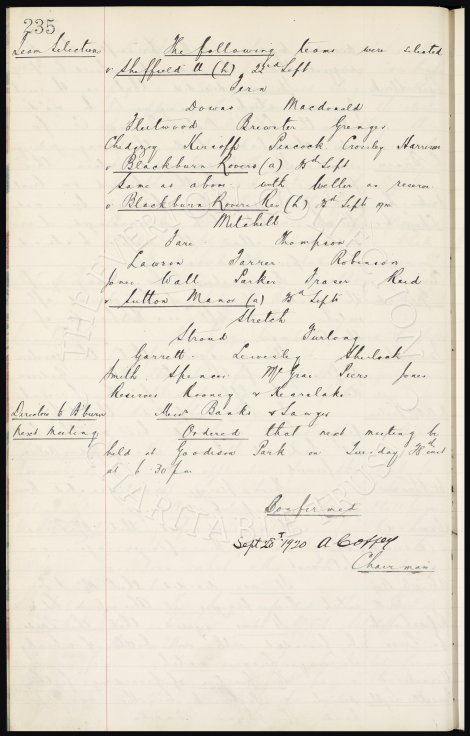 235
Team Selection The following teams were selected
v Sheffield U (h) 22nd Sept
Fern
Downs Macdonald
Fleetwood Brewster Grenyer
Chedgzoy Kirsopp Peacock Crossley Harrison
v Blackburn Rovers (a) 25th Sept
Same as above with Weller as reserve
v Blackburn Rovers Res (h) 25th Sept
Mitchell
Fare Thompson
Lawson Farrer Robinson
Jones Wall Parker Fraser Reid
v Sutton Manor (a) 25th Sept
Stretch
Stroud Furlong
Garrett Lewesley Sherlock
Smith Spencer McGrae Piers Jones
Reserves Rooney & Kearslake
Directors to B'burn Messrs Banks & Sawyer
Next Meeting Ordered that next meeting be
held at Goodison Park on Tuesday 28th inst
at 6.30 pm
Confirmed
Sept 28th 1920 A Coffey
Chairman
THE EVERTON
CHARITABLE TRUST